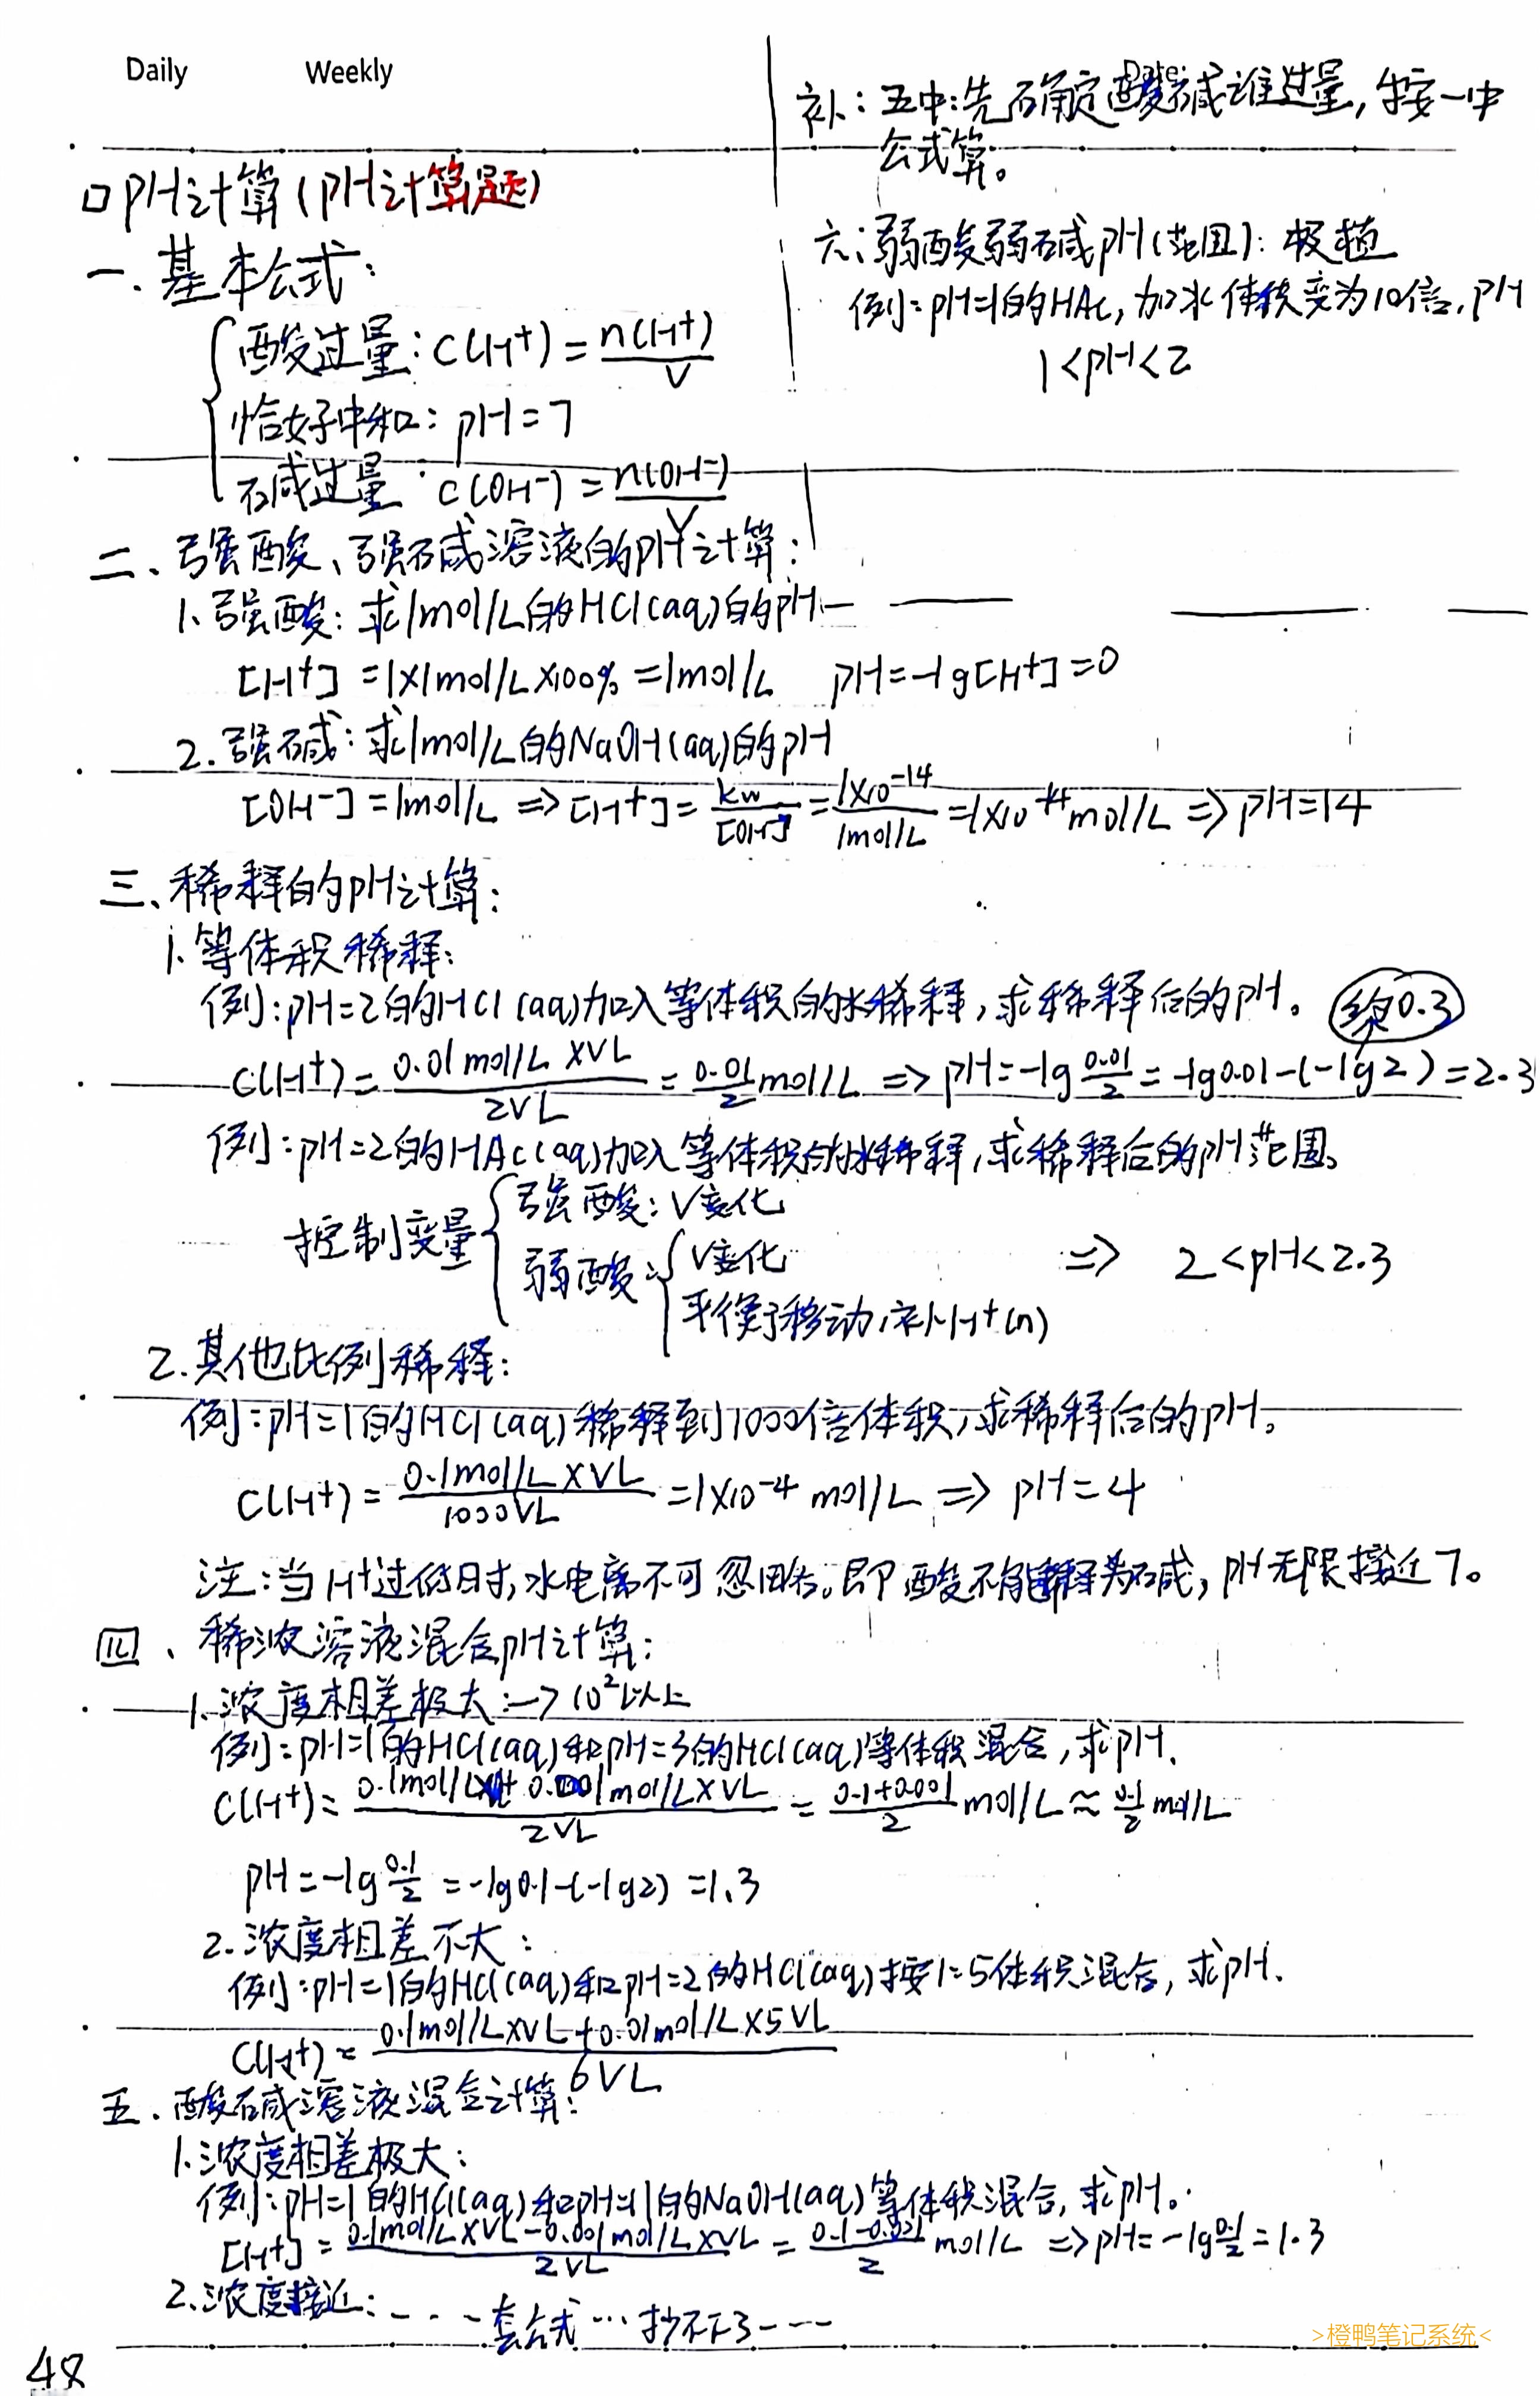 Daily Weekly
Date:
补：五中：先确定酸碱谁过量，按一中
公式算。
六：弱酸弱碱pH(范围)：极值
例：pH=1的HAc，加水体积变为10倍，pH
1<pH<2
口pH计算(pH计算题)
一.基本公式：
酸过量：C(H⁺)=n(H⁺)/V
恰好中和：pH=7
碱过量：C(OH⁻)=n(OH⁻)/V
二、强酸、强碱溶液的pH计算：
1.强酸：求1mol/L的HCl(aq)的pH
[H⁺]=1×1mol/L×100%=1mol/L pH=-lg[H⁺]=0
2.强碱：求1mol/L的NaOH(aq)的pH
[OH⁻]=1mol/L⇒[H⁺]=Kw/[OH⁻]=1×10⁻¹⁴/1mol/L=1×10⁻¹⁴mol/L⇒pH=14
三、稀释的pH计算：
1.等体积稀释：
例：pH=2的HCl(aq)加入等体积的水稀释，求稀释后的pH。 约0.3
C(H⁺)=0.01mol/L×VL/2VL=0.01/2mol/L⇒pH=-lg0.01/2=-lg0.01-(-lg2)=2.3
例：pH=2的HAc(aq)加入等体积的水稀释，求稀释后的pH范围。
控制变量
强酸：V变化
弱酸：V变化
平衡移动，补H⁺(n)
⇒ 2<pH<2.3
2.其他比例稀释：
例：pH=1的HCl(aq)稀释到1000倍体积，求稀释后的pH。
C(H⁺)=0.1mol/L×VL/1000VL=1×10⁻⁴mol/L⇒pH=4
注：当H⁺过低时，水电离不可忽略。即酸不能稀释为碱，pH无限接近7。
四、稀浓溶液混合pH计算：
1.浓度相差极大：→10²以上
例：pH=1的HCl(aq)和pH=3的HCl(aq)等体积混合，求pH.
C(H⁺)=0.1mol/L×VL+0.001mol/L×VL/2VL=0.1+0.001/2mol/L≈0.1/2mol/L
pH=-lg0.1/2=-lg0.1-(-lg2)=1.3
2.浓度相差不大：
例：pH=1的HCl(aq)和pH=2的HCl(aq)按1:5体积混合，求pH.
C(H⁺)=0.1mol/L×VL+0.01mol/L×5VL/6VL
五.酸碱溶液混合计算：
1.浓度相差极大：
例：pH=1的HCl(aq)和pH=11的NaOH(aq)等体积混合，求pH。
[H⁺]=0.1mol/L×VL-0.001mol/L×VL/2VL=0.1-0.001/2mol/L⇒pH=-lg0.1/2=1.3
2.浓度接近：---套公式…抄不下了---
>橙鸭笔记系统<
48